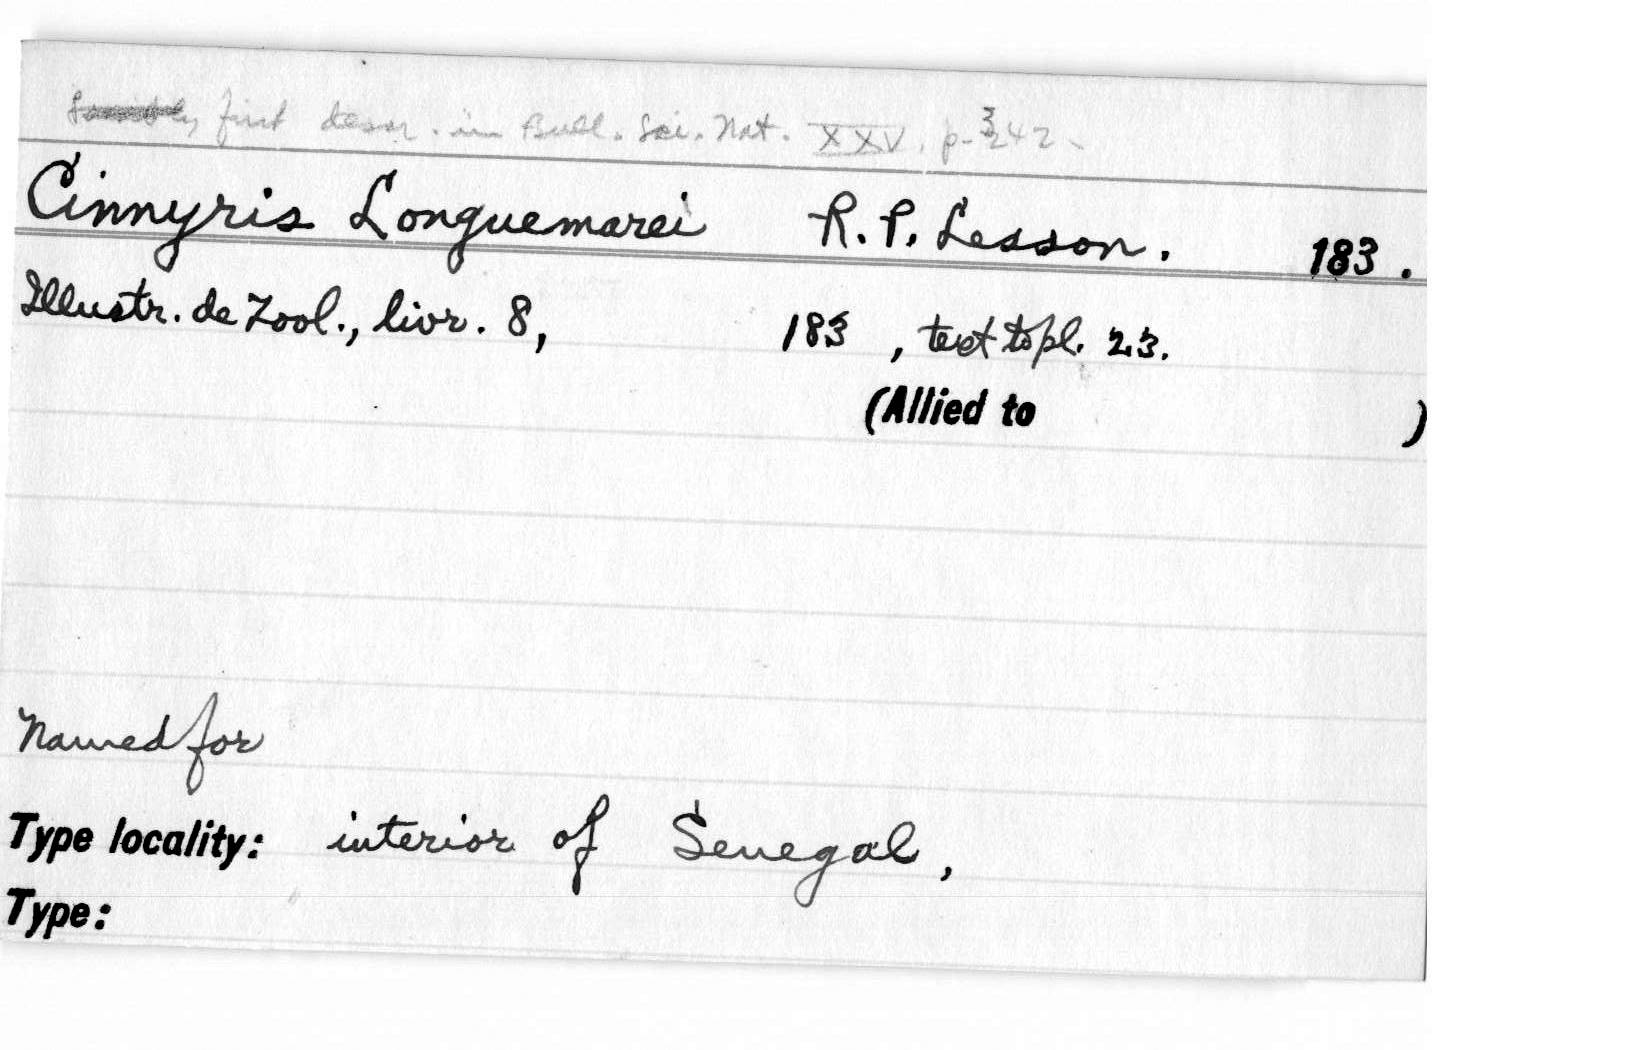 first descr. in Bull. Sci. Nat. XXV, p. 242.
Cinnyris Longuemarei R. P. Lesson. 183 .
Illustr. de Zool., livr. 8, 183 , text to pl. 23.
(Allied to )
Named for
Type locality: interior of Senegal,
Type: